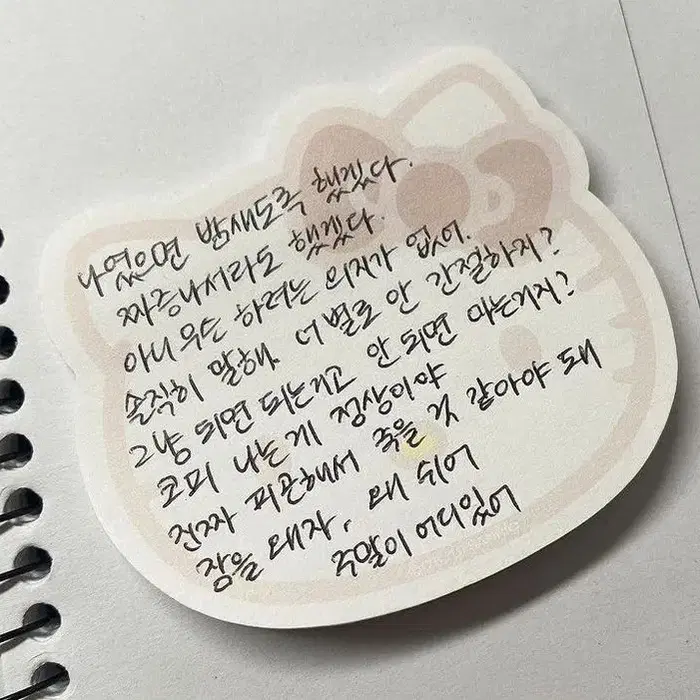 나였으면 밤새도록 했겠다.
짜증나서라도 했겠다.
아니 무슨 하려는 의지가 없어.
솔직히 말해. 너 별로 안 간절하지?
그냥 되면 되는거고 안 되면 마는거지?
코피 나는게 정상이야
진짜 피곤해서 죽을 것 같아야 돼
잠을 왜자, 왜 쉬어
주말이 어디있어